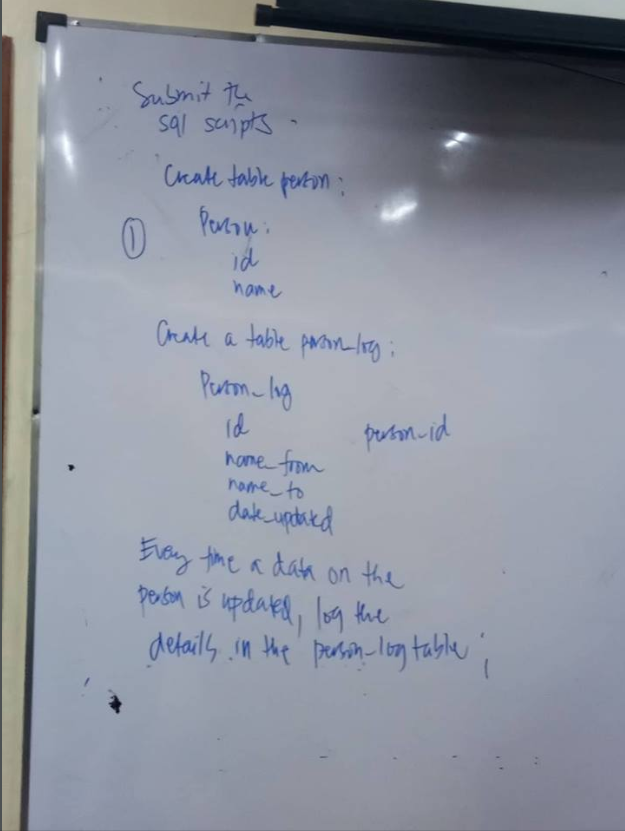 Submit the
sql scripts.
Create table person:
①
Person:
id
name
Create a table person_log:
Person_log
id
person_id
name_from
name_to
date_updated
Every time a data on the
person is updated, log the
details in the person_log table;